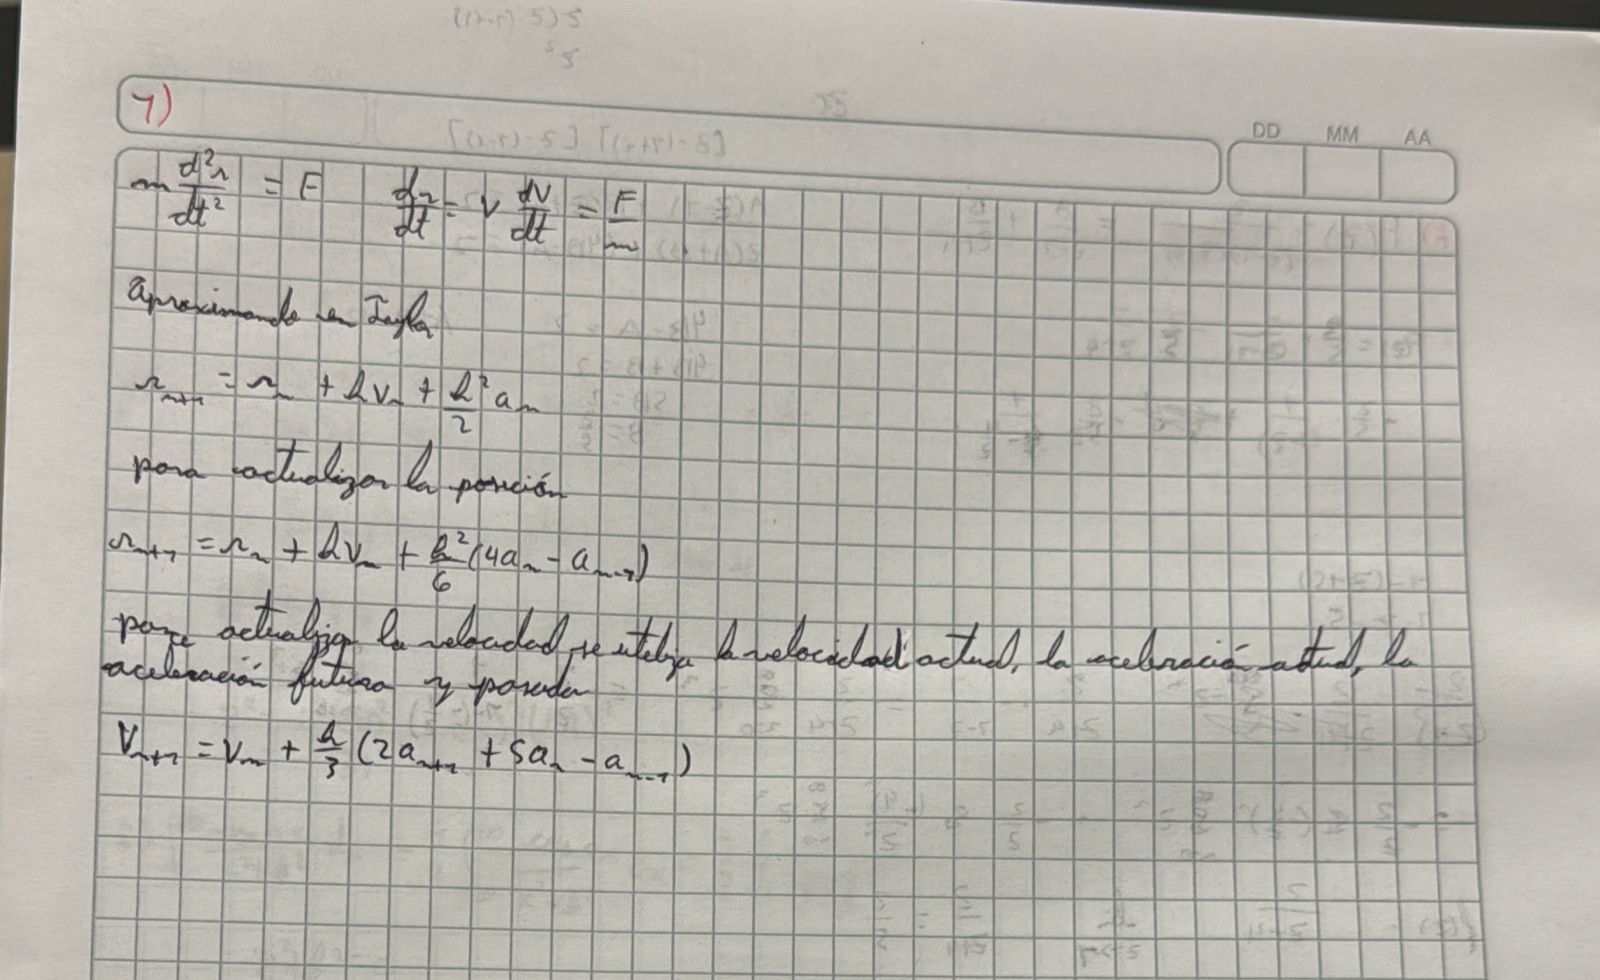 1)
DD MM AA
m d²r/dt² = F   dr/dt = v   dv/dt = F/m
Aproximando en Taylor
r_{n+1} = r_n + h v_n + h²/2 a_n
para actualizar la posición
r_{n+1} = r_n + h v_n + h²/6 (4a_n - a_{n-1})
para actualizar la velocidad, se utiliza la velocidad actual, la aceleración actual, la
aceleración futura y pasada
V_{n+1} = V_n + h/3 (2a_{n+1} + 5a_n - a_{n-1})